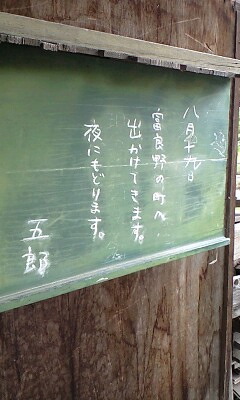 八月十九日
富良野の町へ
出かけてきます。
夜にもどります。
五郎